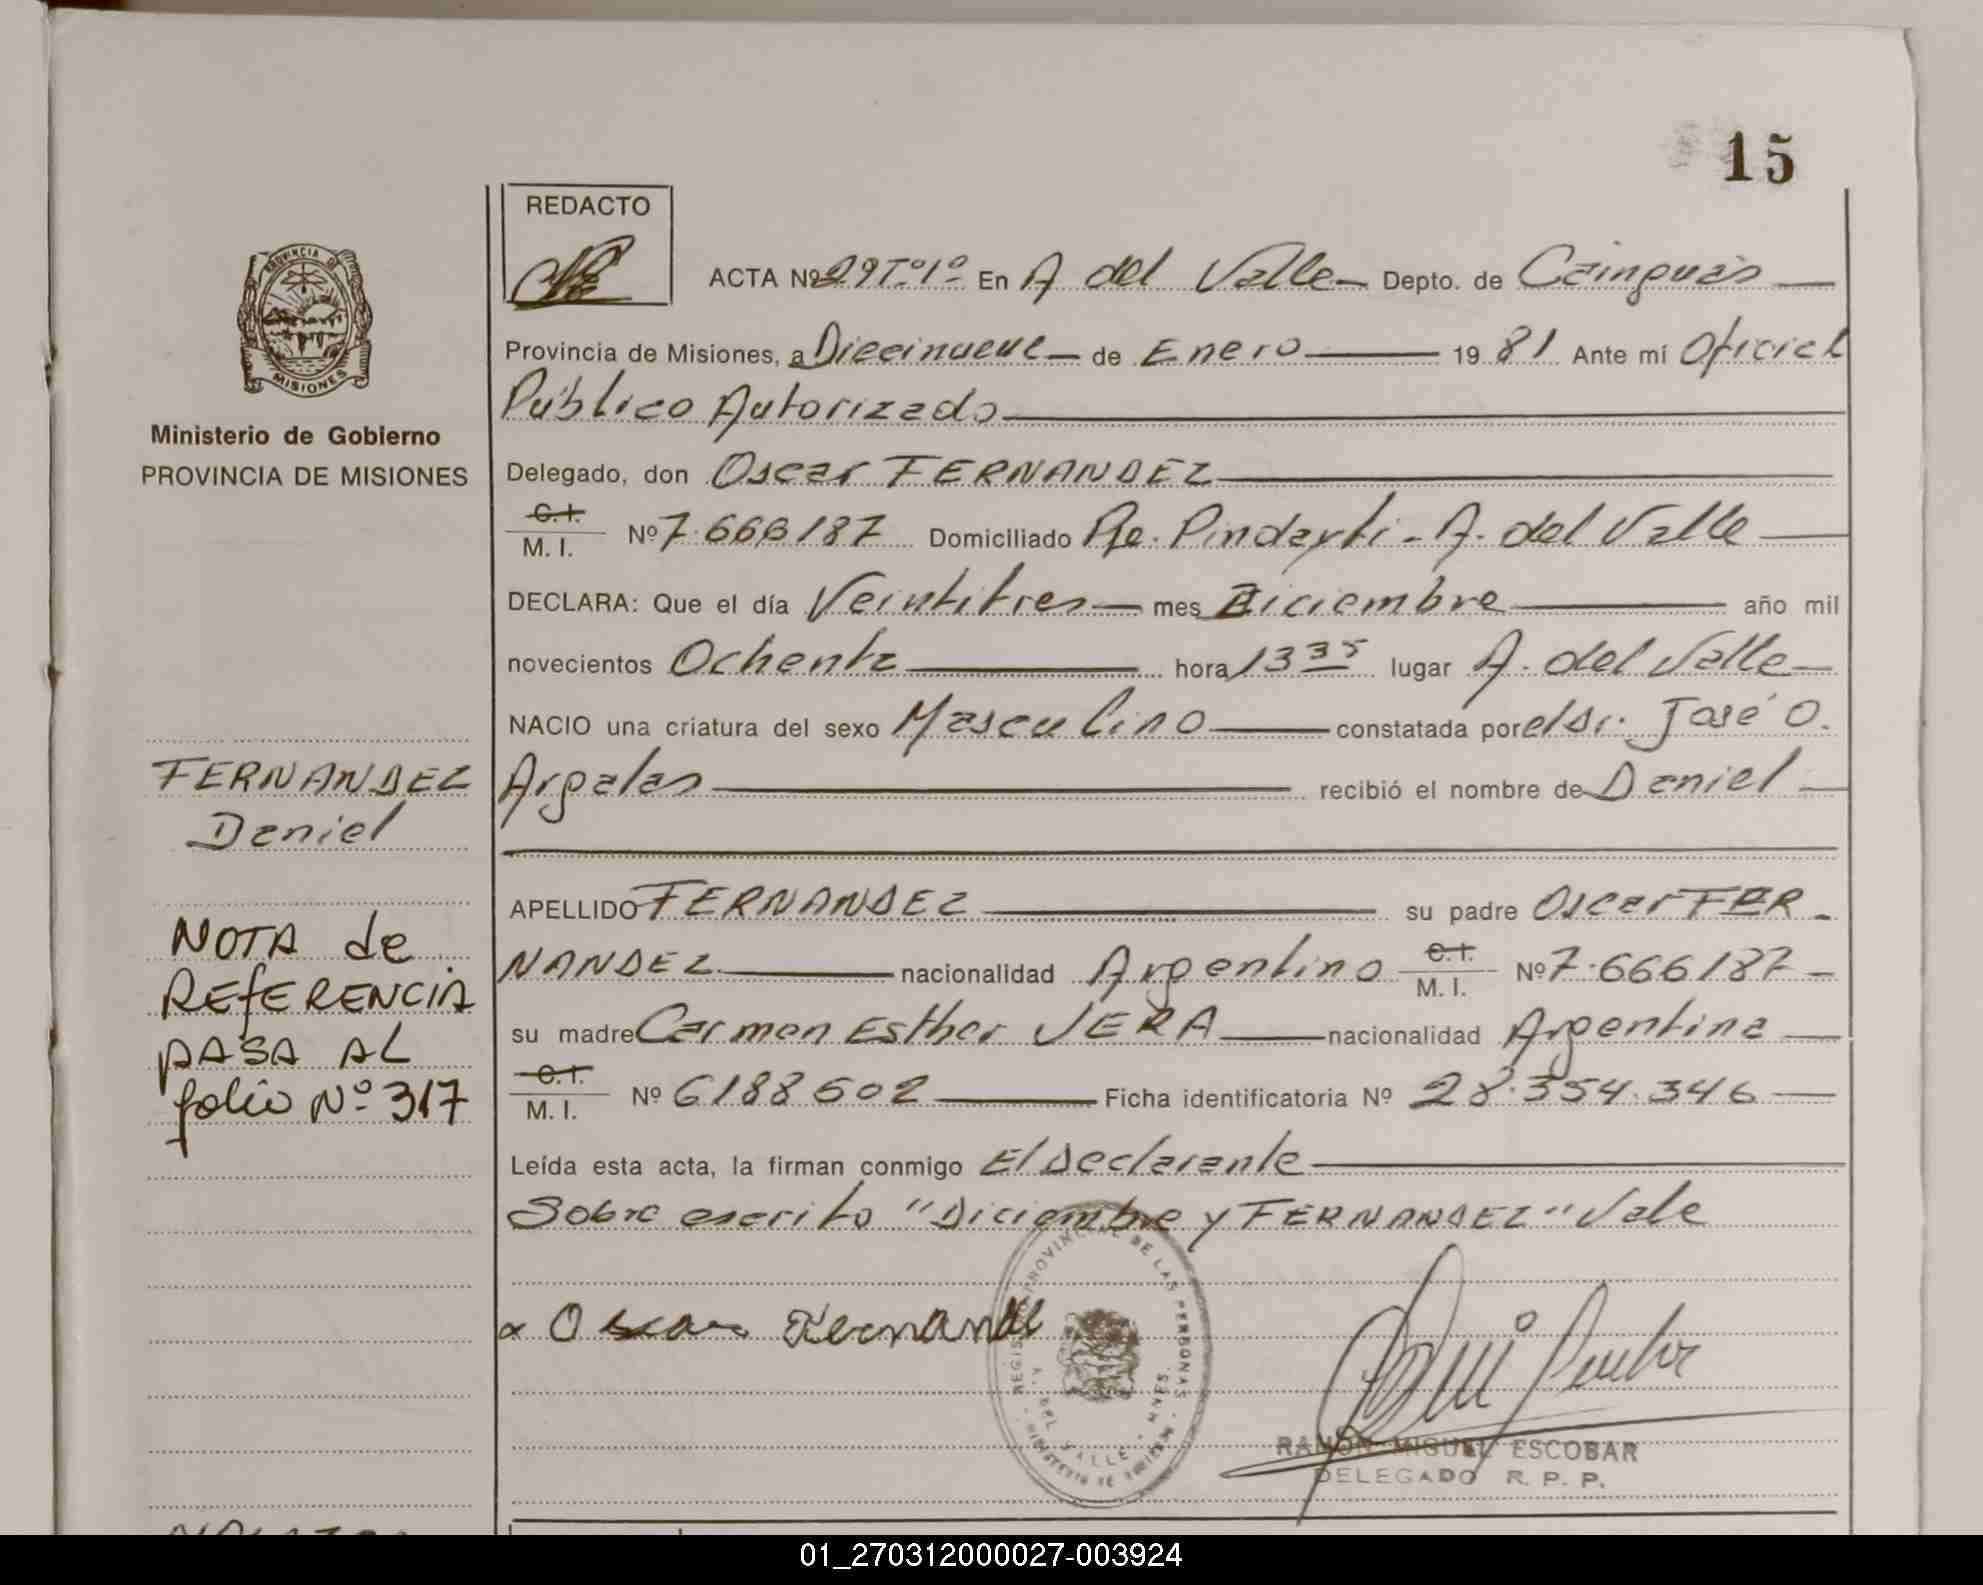 15
REDACTO
ACTA Nº 29 Tº 1º En A del Valle Depto. de Cainguas
PROVINCIA DE
MISIONES
Provincia de Misiones, a Diecinueve de Enero 19 81 Ante mí Oficial
Público Autorizado
Ministerio de Gobierno
PROVINCIA DE MISIONES
Delegado, don Oscar FERNANDEZ
C. I.
M. I. Nº 7.666187 Domiciliado Pje. Pindayti - A. del Valle
DECLARA: Que el día Veintitres mes Diciembre año mil
novecientos Ochenta hora 13 35 lugar A. del Valle
NACIO una criatura del sexo Masculino constatada por el Dr. José O.
Argalas recibió el nombre de Daniel
FERNANDEZ
Daniel
APELLIDO FERNANDEZ su padre Oscar FER-
NANDEZ nacionalidad Argentino C. I. M. I. Nº 7.666187
su madre Carmen Esther VERA nacionalidad Argentina
C. I.
M. I. Nº 6188502 Ficha identificatoria Nº 28.354.346
NOTA de
REfERENCIA
pASA AL
folio Nº 317
Leída esta acta, la firman conmigo El Declarante
Sobre escrito "Diciembre y FERNANDEZ" Vale
Oscar Fernandez
REGISTRO PROVINCIAL DE LAS PERSONAS
A. DEL VALLE - MNES.
MINISTERIO DE GOBIERNO
RAMON MIGUEL ESCOBAR
DELEGADO R. P. P.
01_270312000027-003924